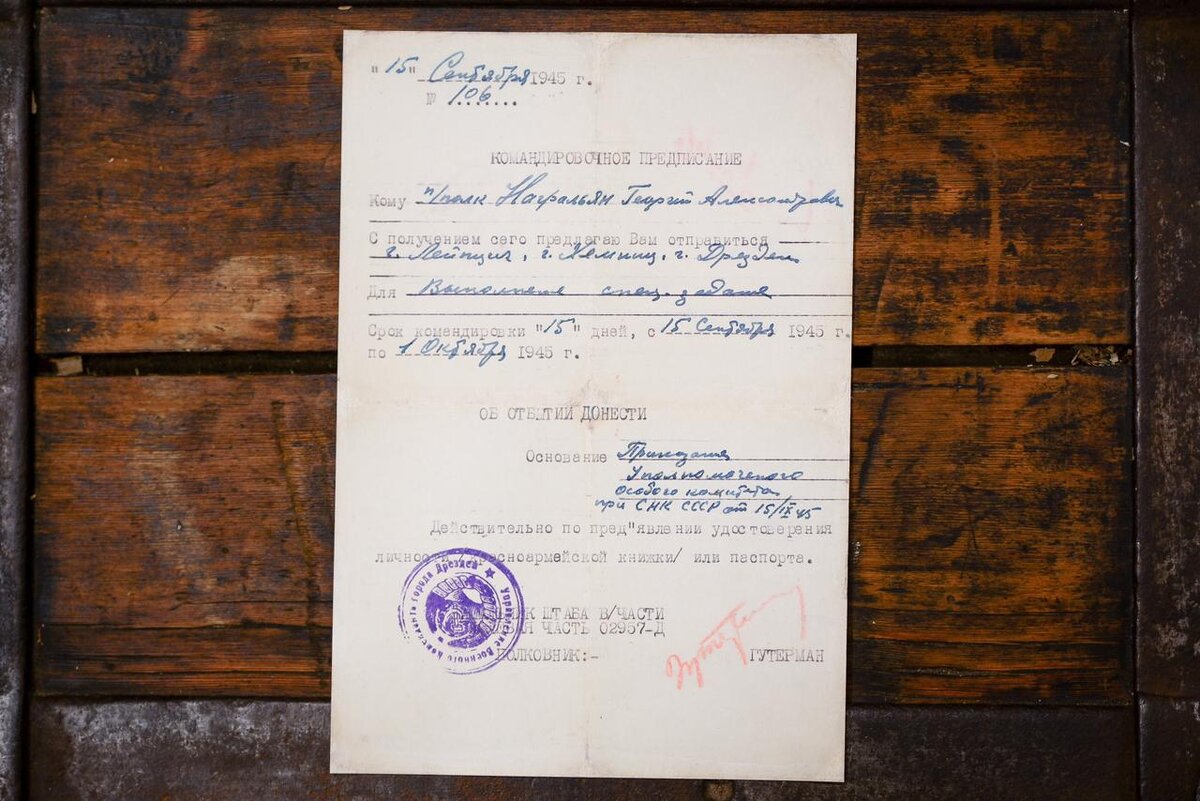 "15" Сентября 1945 г.
№ 106.......
КОМАНДИРОВОЧНОЕ ПРЕДПИСАНИЕ
Кому п/полк Нафальян Георгий Александрович
С получением сего предлагаю Вам отправиться
г. Лейпциг, г. Хемниц, г. Дрезден
Для Выполнения спец. задания
Срок командировки "15" дней, с 15 Сентября 1945 г.
по 1 Октября 1945 г.
ОБ ОТБЫТИИ ДОНЕСТИ
Основание Приказания
Уполномоченого
Особого комитета
при СНК СССР от 15/IX 45
Действительно по пред"явлении удостоверения
личности /красноармейской книжки/ или паспорта.
Управление Военного Коменданта города Дрезден
НАЧАЛЬНИК ШТАБА В/ЧАСТИ
ЧАСТЬ 02957-Д
ПОЛКОВНИК:- ГУТЕРМАН